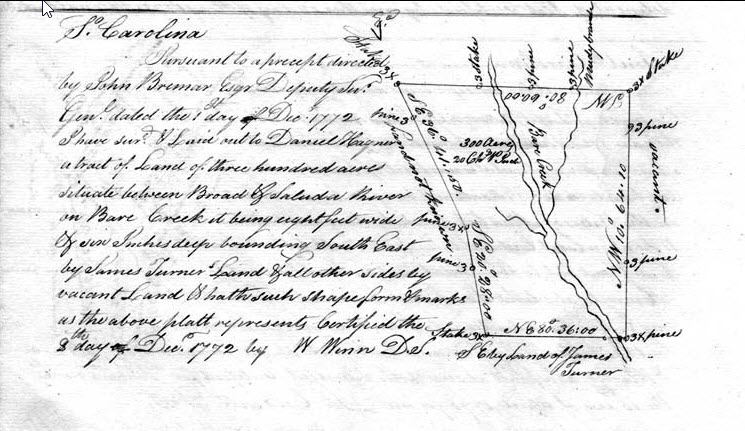 So Carolina
Pursuant to a precept directed
by John Bremar Esqr Deputy Sur.
Genl. dated the 1st day of Decr. 1772
I have surd. & Laid out to Daniel Hagner
a tract of Land of three hundred acres
situate between Broad & Saluda River
on Bare Creek it being eight feet wide
& six Inches deep bounding South East
by James Turner Land & all other sides by
vacant Land & hath such shape form & marks
as the above platt represents Certified the
8th day of Decr. 1772 by W Winn D.S.
Stake 3X
3 stake
3 pine
3 pine
3X Stake
N W
80: 60:00
S E 36° 41:50
Land not known
pine 3
300 Acres
20 Chs. Pr Inch
Bare Creek
3 pine
vacant
N W 10° 64:10
3 pine
pine 3X
pine 3
S E 20° 28:00
Stake 3X
N E 80° 36:00
3X pine
S E by Land of James
Turner